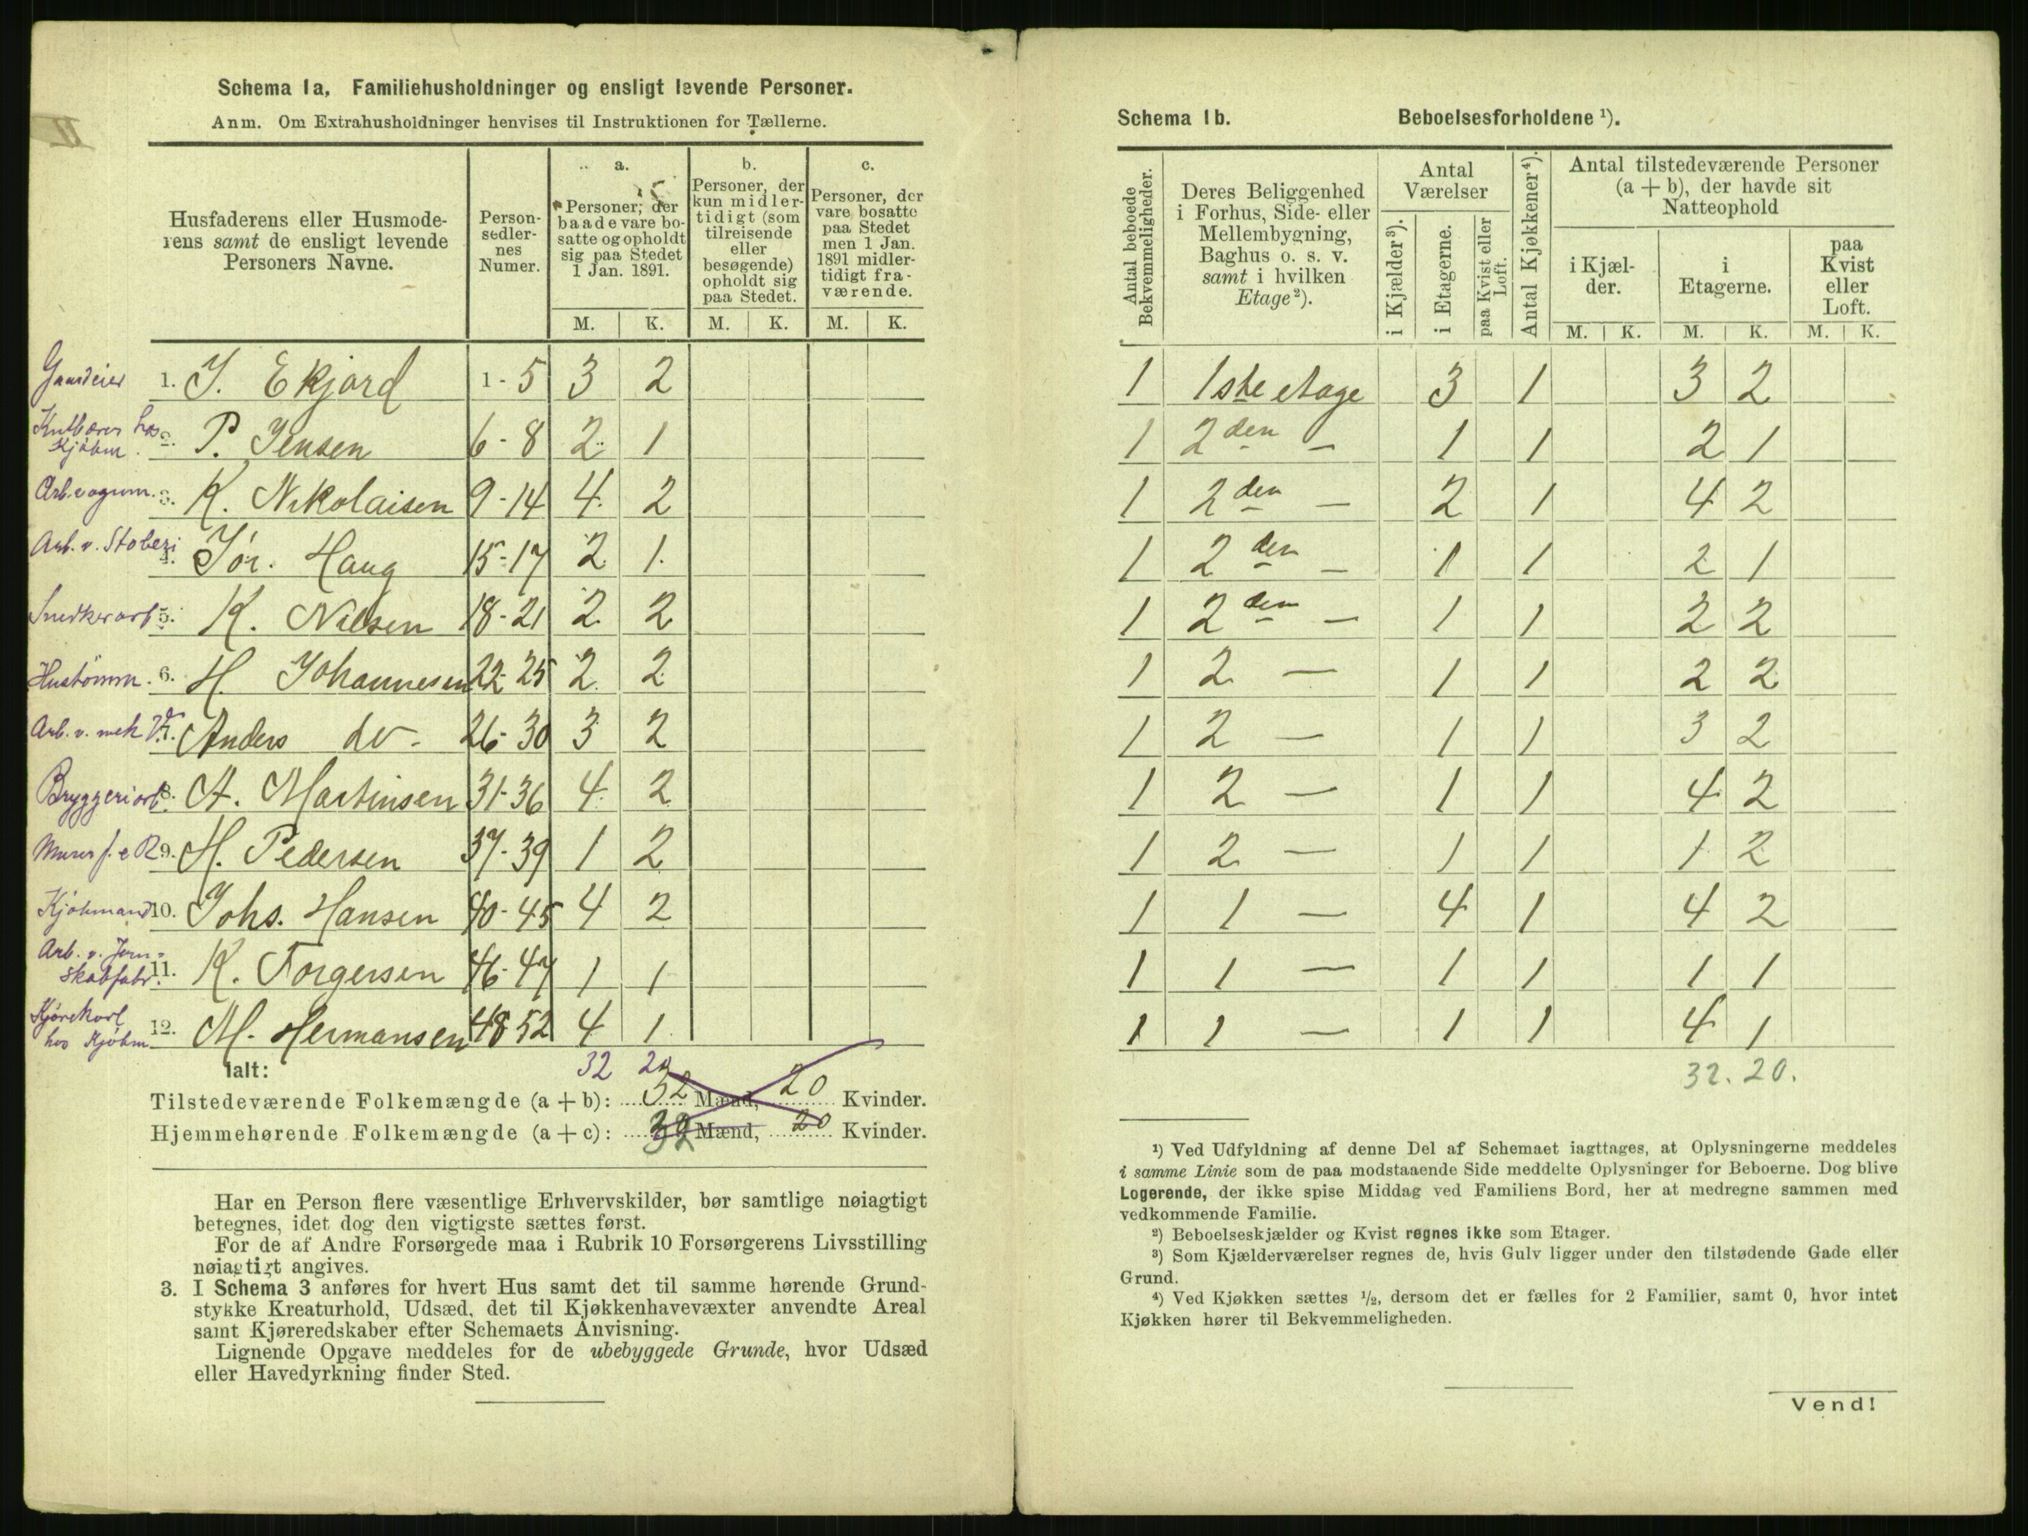 Schema 1a, Familiehusholdninger og ensligt levende Personer.
Anm. Om Extrahusholdninger henvises til Instruktionen for Tællerne.
II
Husfaderens eller Husmoderens samt de ensligt levende Personers Navne.
Personsedlernes Numer.
a. Personer, der baade vare bosatte og opholdt sig paa Stedet 1 Jan. 1891.
b. Personer, der kun midlertidigt (som tilreisende eller besøgende) opholdt sig paa Stedet.
c. Personer, der vare bosatte paa Stedet men 1 Jan. 1891 midlertidigt fraværende.
M. K. M. K. M. K.
Gaardeier 1. J. Ekjord 1-5 3 2
hos Kjøbm. 2. P. Jensen 6-8 2 1
Arb. 3. K. Nikolaisen 9-14 4 2
Arb. v. Støberi 4. Jør. Haug 15-17 2 1
Snedkerarb 5. K. Nilsen 18-21 2 2
Hustømm. 6. H. Johannesen 22-25 2 2
Arb. v. mek V. 7. Anders do- 26-30 3 2
Bryggeriarb. 8. A. Martinsen 31-36 4 2
Murer f. e R 9. H. Pedersen 37-39 1 2
Kjøbmand 10. Johs. Hansen 40-45 4 2
Arb. v. Jern-
skabfabr. 11. K. Torgersen 46-47 1 1
Kjørekarl
hos Kjøbm 12. M. Hermansen 48-52 4 1
Ialt: 32 20
Tilstedeværende Folkemængde (a + b): 32 Mænd, 20 Kvinder.
Hjemmehørende Folkemængde (a + c): 32 Mænd, 20 Kvinder.
Har en Person flere væsentlige Erhvervskilder, bør samtlige nøiagtigt
betegnes, idet dog den vigtigste sættes først.
For de af Andre Forsørgede maa i Rubrik 10 Forsørgerens Livsstilling
nøiagtigt angives.
3. I Schema 3 anføres for hvert Hus samt det til samme hørende Grund-
stykke Kreaturhold, Udsæd, det til Kjøkkenhavevæxter anvendte Areal
samt Kjøreredskaber efter Schemaets Anvisning.
Lignende Opgave meddeles for de ubebyggede Grunde, hvor Udsæd
eller Havedyrkning finder Sted.
Schema 1b. Beboelsesforholdene ¹).
Antal beboede Bekvemmeligheder.
Deres Beliggenhed i Forhus, Side- eller Mellembygning, Baghus o. s. v. samt i hvilken Etage ²).
Antal Værelser
i Kjælder ³).
i Etagerne.
paa Kvist eller Loft.
Antal Kjøkkener ⁴).
Antal tilstedeværende Personer (a + b), der havde sit Natteophold
i Kjælder.
i Etagerne.
paa Kvist eller Loft.
M. K. M. K. M. K.
1 1ste etage 3 1 3 2
1 2den — 1 1 2 1
1 2den — 2 1 4 2
1 2den — 1 1 2 1
1 2den — 1 1 2 2
1 2 — 1 1 2 2
1 2 — 1 1 3 2
1 2 — 1 1 4 2
1 2 — 1 1 1 2
1 1 — 4 1 4 2
1 1 — 1 1 1 1
1 1 — 1 1 4 1
32. 20.
¹) Ved Udfyldning af denne Del af Schemaet iagttages, at Oplysningerne meddeles
i samme Linie som de paa modstaaende Side meddelte Oplysninger for Beboerne. Dog blive
Logerende, der ikke spise Middag ved Familiens Bord, her at medregne sammen med
vedkommende Familie.
²) Beboelseskjælder og Kvist regnes ikke som Etager.
³) Som Kjælderværelser regnes de, hvis Gulv ligger under den tilstødende Gade eller
Grund.
⁴) Ved Kjøkken sættes ½, dersom det er fælles for 2 Familier, samt 0, hvor intet
Kjøkken hører til Bekvemmeligheden.
Vend!